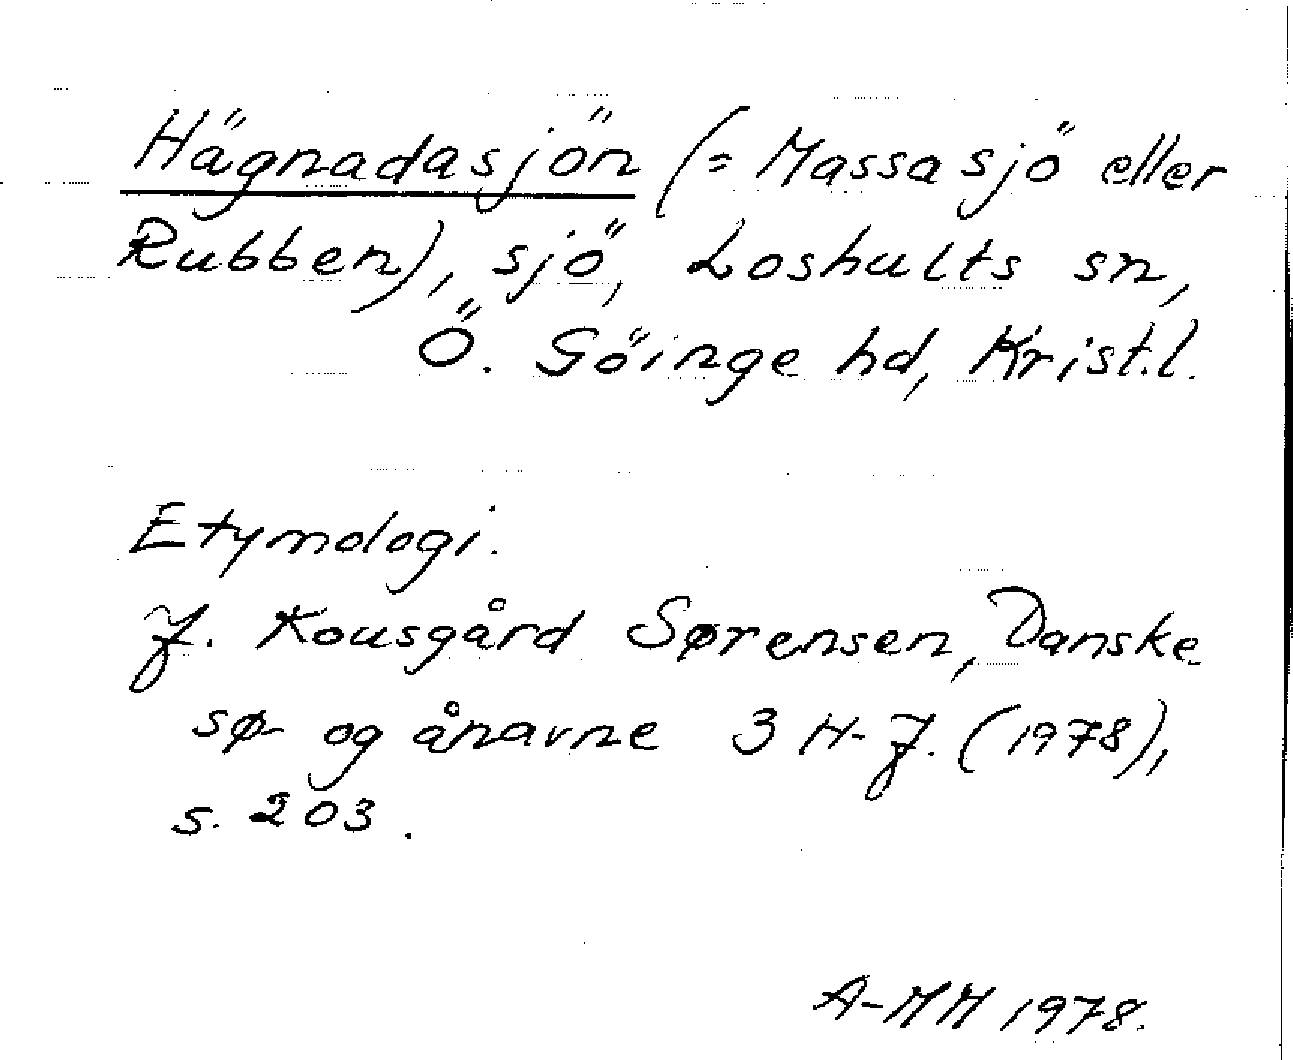 Hägnadasjön (= Massasjö eller
Rubben), sjö, Loshults sn,
Ö. Göinge hd, Krist.l.
Etymologi.
J. Kousgård Sørensen, Danske
sø- og ånavne 3 H-J. (1978),
s. 203.
A-MM 1978.